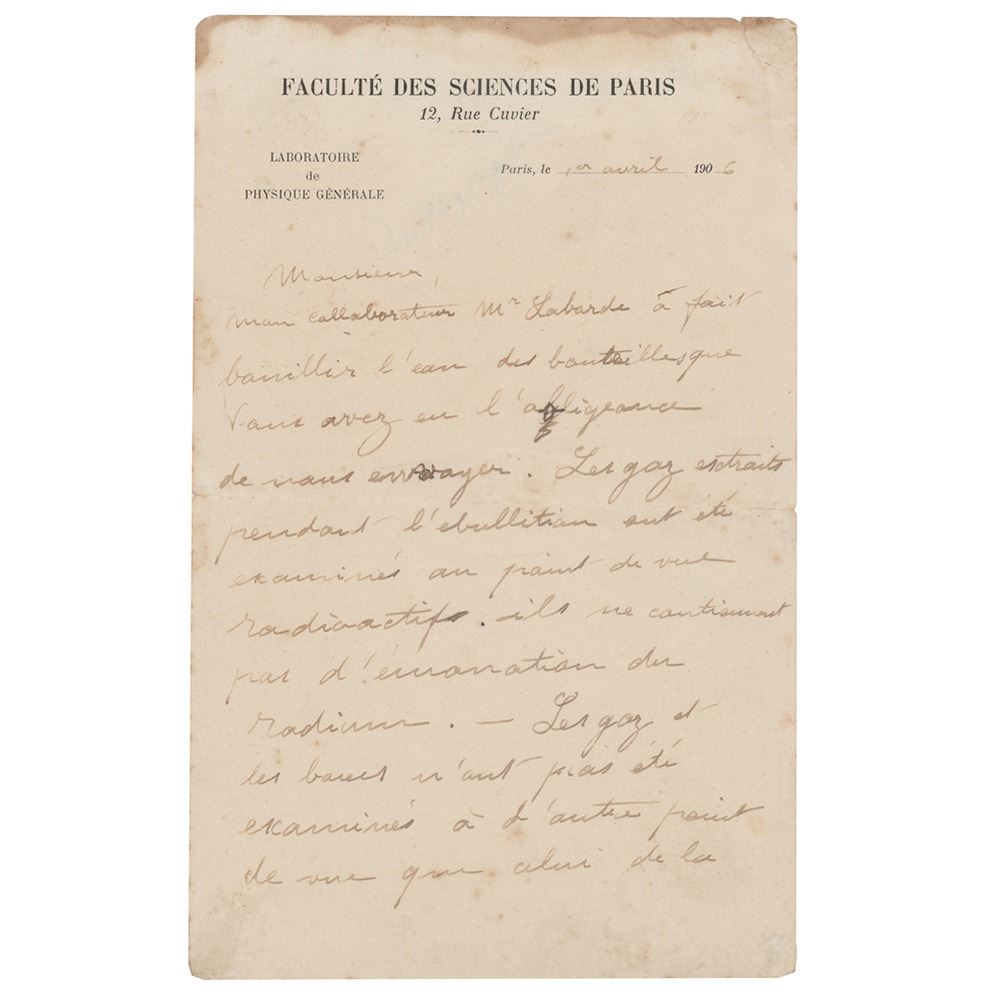 FACULTÉ DES SCIENCES DE PARIS
12, Rue Cuvier
LABORATOIRE
de
PHYSIQUE GÉNÉRALE
Paris, le 1er avril 1906
Monsieur,
mon collaborateur Mr Laborde à fait
bouillir l'eau des bouteilles que
Vous avez eu l'obligeance
de nous envoyer. Les gaz extraits
pendant l'ebullition ont été
examinés au point de vue
radioactifs. ils ne contiennent
pas d'émanation du
radium. — Les gaz et
les boues n'ont pas été
examinés à d'autre point
de vue que celui de la